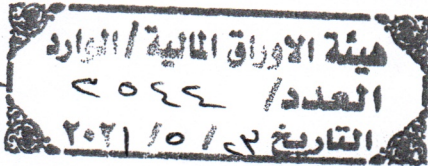 هيئة الاوراق المالية / الوارد
العدد / ٢٥٤٤
التاريخ ٣ / ٥ / ٢٠٢١